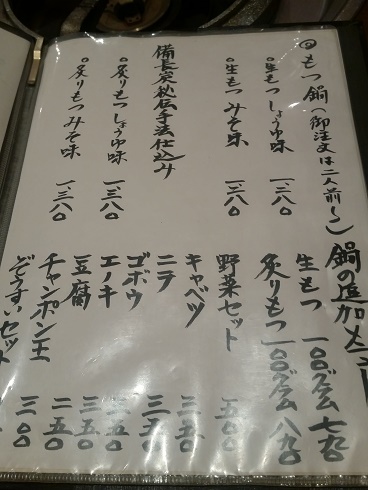 もつ鍋(御注文は二人前〜)
◦生もつしょうゆ味 一、三八〇
◦生もつみそ味 一、三八〇
備長炭秘伝手法仕込み
◦炙りもつしょうゆ味 一、三八〇
◦炙りもつみそ味 一、三八〇
鍋の追加メニュー
生もつ 一〇〇グラム 七九〇
炙りもつ 一〇〇グラム 八九〇
野菜セット 五〇〇
キャベツ 三五〇
ニラ 三五〇
ゴボウ 三五〇
エノキ 二五〇
豆腐 二五〇
チャンポン玉 二五〇
ぞうすいセット 三〇〇